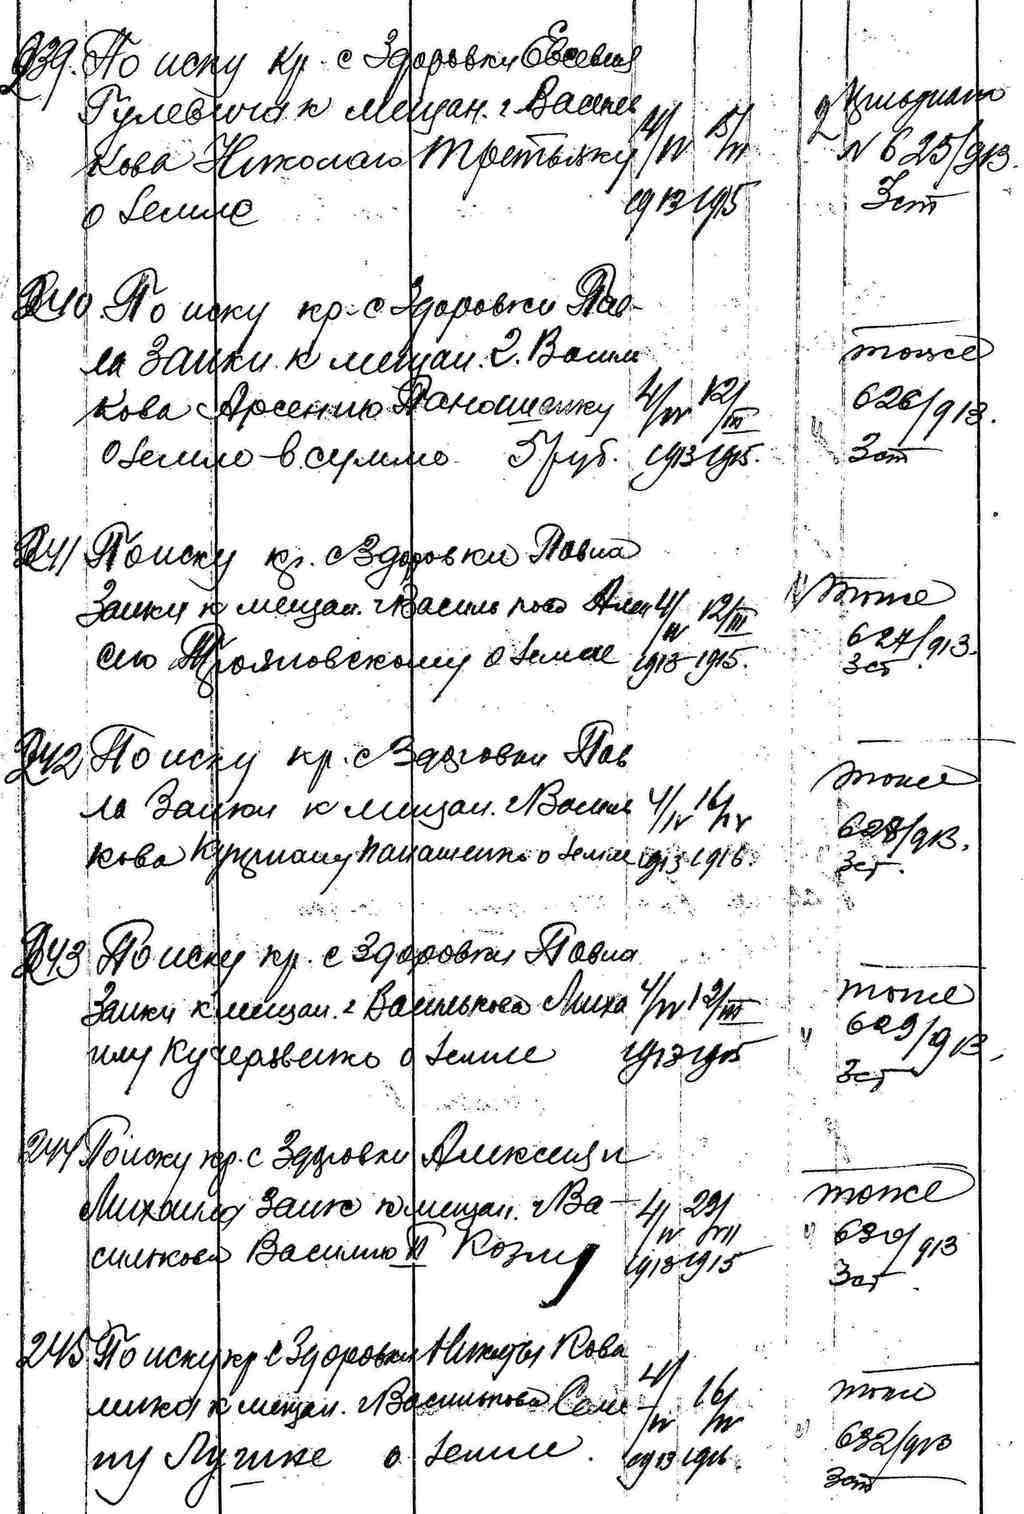 239. По иску кр. с Здоровки Евсевия
Гулевича к мещан. г. Василь
кова Николаю Третьяку 4/IV
N 625/913.
о земле 1913 1915 3 ст
240. По иску кр. с Здоровки Пав-
ла Заики к мещан. г. Василь тоже
кова Арсению Панашенку 4/IV 12/III 626/913.
о земле в сумме 5 руб. 1913 1915. 3 ст
241 По иску кр. с Здоровки Павла
Заики к мещан. г. Василькова Алек 4/IV 12/III тоже
сею Трояновскому о земле 1913 1915. 627/913. 3 ст
242 По иску кр. с Здоровки Пав
ла Заики к мещан. г. Василь 4/IV 16/IV тоже
кова Панашенко о земле 1913 1916. 628/913. 3 ст.
243 По иску кр. с Здоровки Павла
Заики к мещан. г. Василькова Миха 4/IV 12/III тоже
илу Кучеровенко о земле 1913 1915 629/913. 3 ст
244 По иску кр. с Здоровки Алексея и
Михаила Заик к мещан. г. Ва- 4/IV тоже
силькова Василию Козлу 1913 1915 630/913 3 ст.
245 По иску кр с Здоровки Никиты Кова
лика к мещан. г. Василькова Семе- 4/IV 16/IV тоже
ну Лушке о земле. 1913 1916. 632/913 3 ст